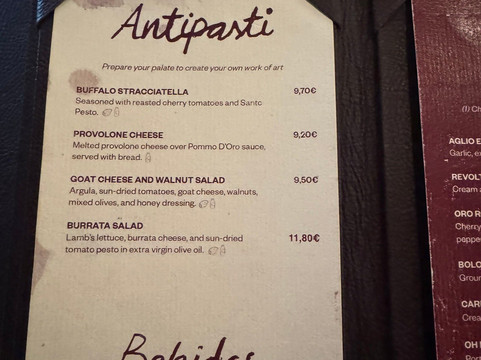 Antipasti
Prepare your palate to create your own work of art
BUFFALO STRACCIATELLA 9,70€
Seasoned with roasted cherry tomatoes and Santo
Pesto.
PROVOLONE CHEESE 9,20€
Melted provolone cheese over Pommo D'Oro sauce,
served with bread.
GOAT CHEESE AND WALNUT SALAD 9,50€
Argula, sun-dried tomatoes, goat cheese, walnuts,
mixed olives, and honey dressing.
BURRATA SALAD 11,80€
Lamb's lettuce, burrata cheese, and sun-dried
tomato pesto in extra virgin olive oil.
Bebidas
(1) Ch
AGLIO E
Garlic, ex
REVOLT
Cream a
ORO R
Cherry
peppe
BOLO
Groun
CAR
Crea
OH